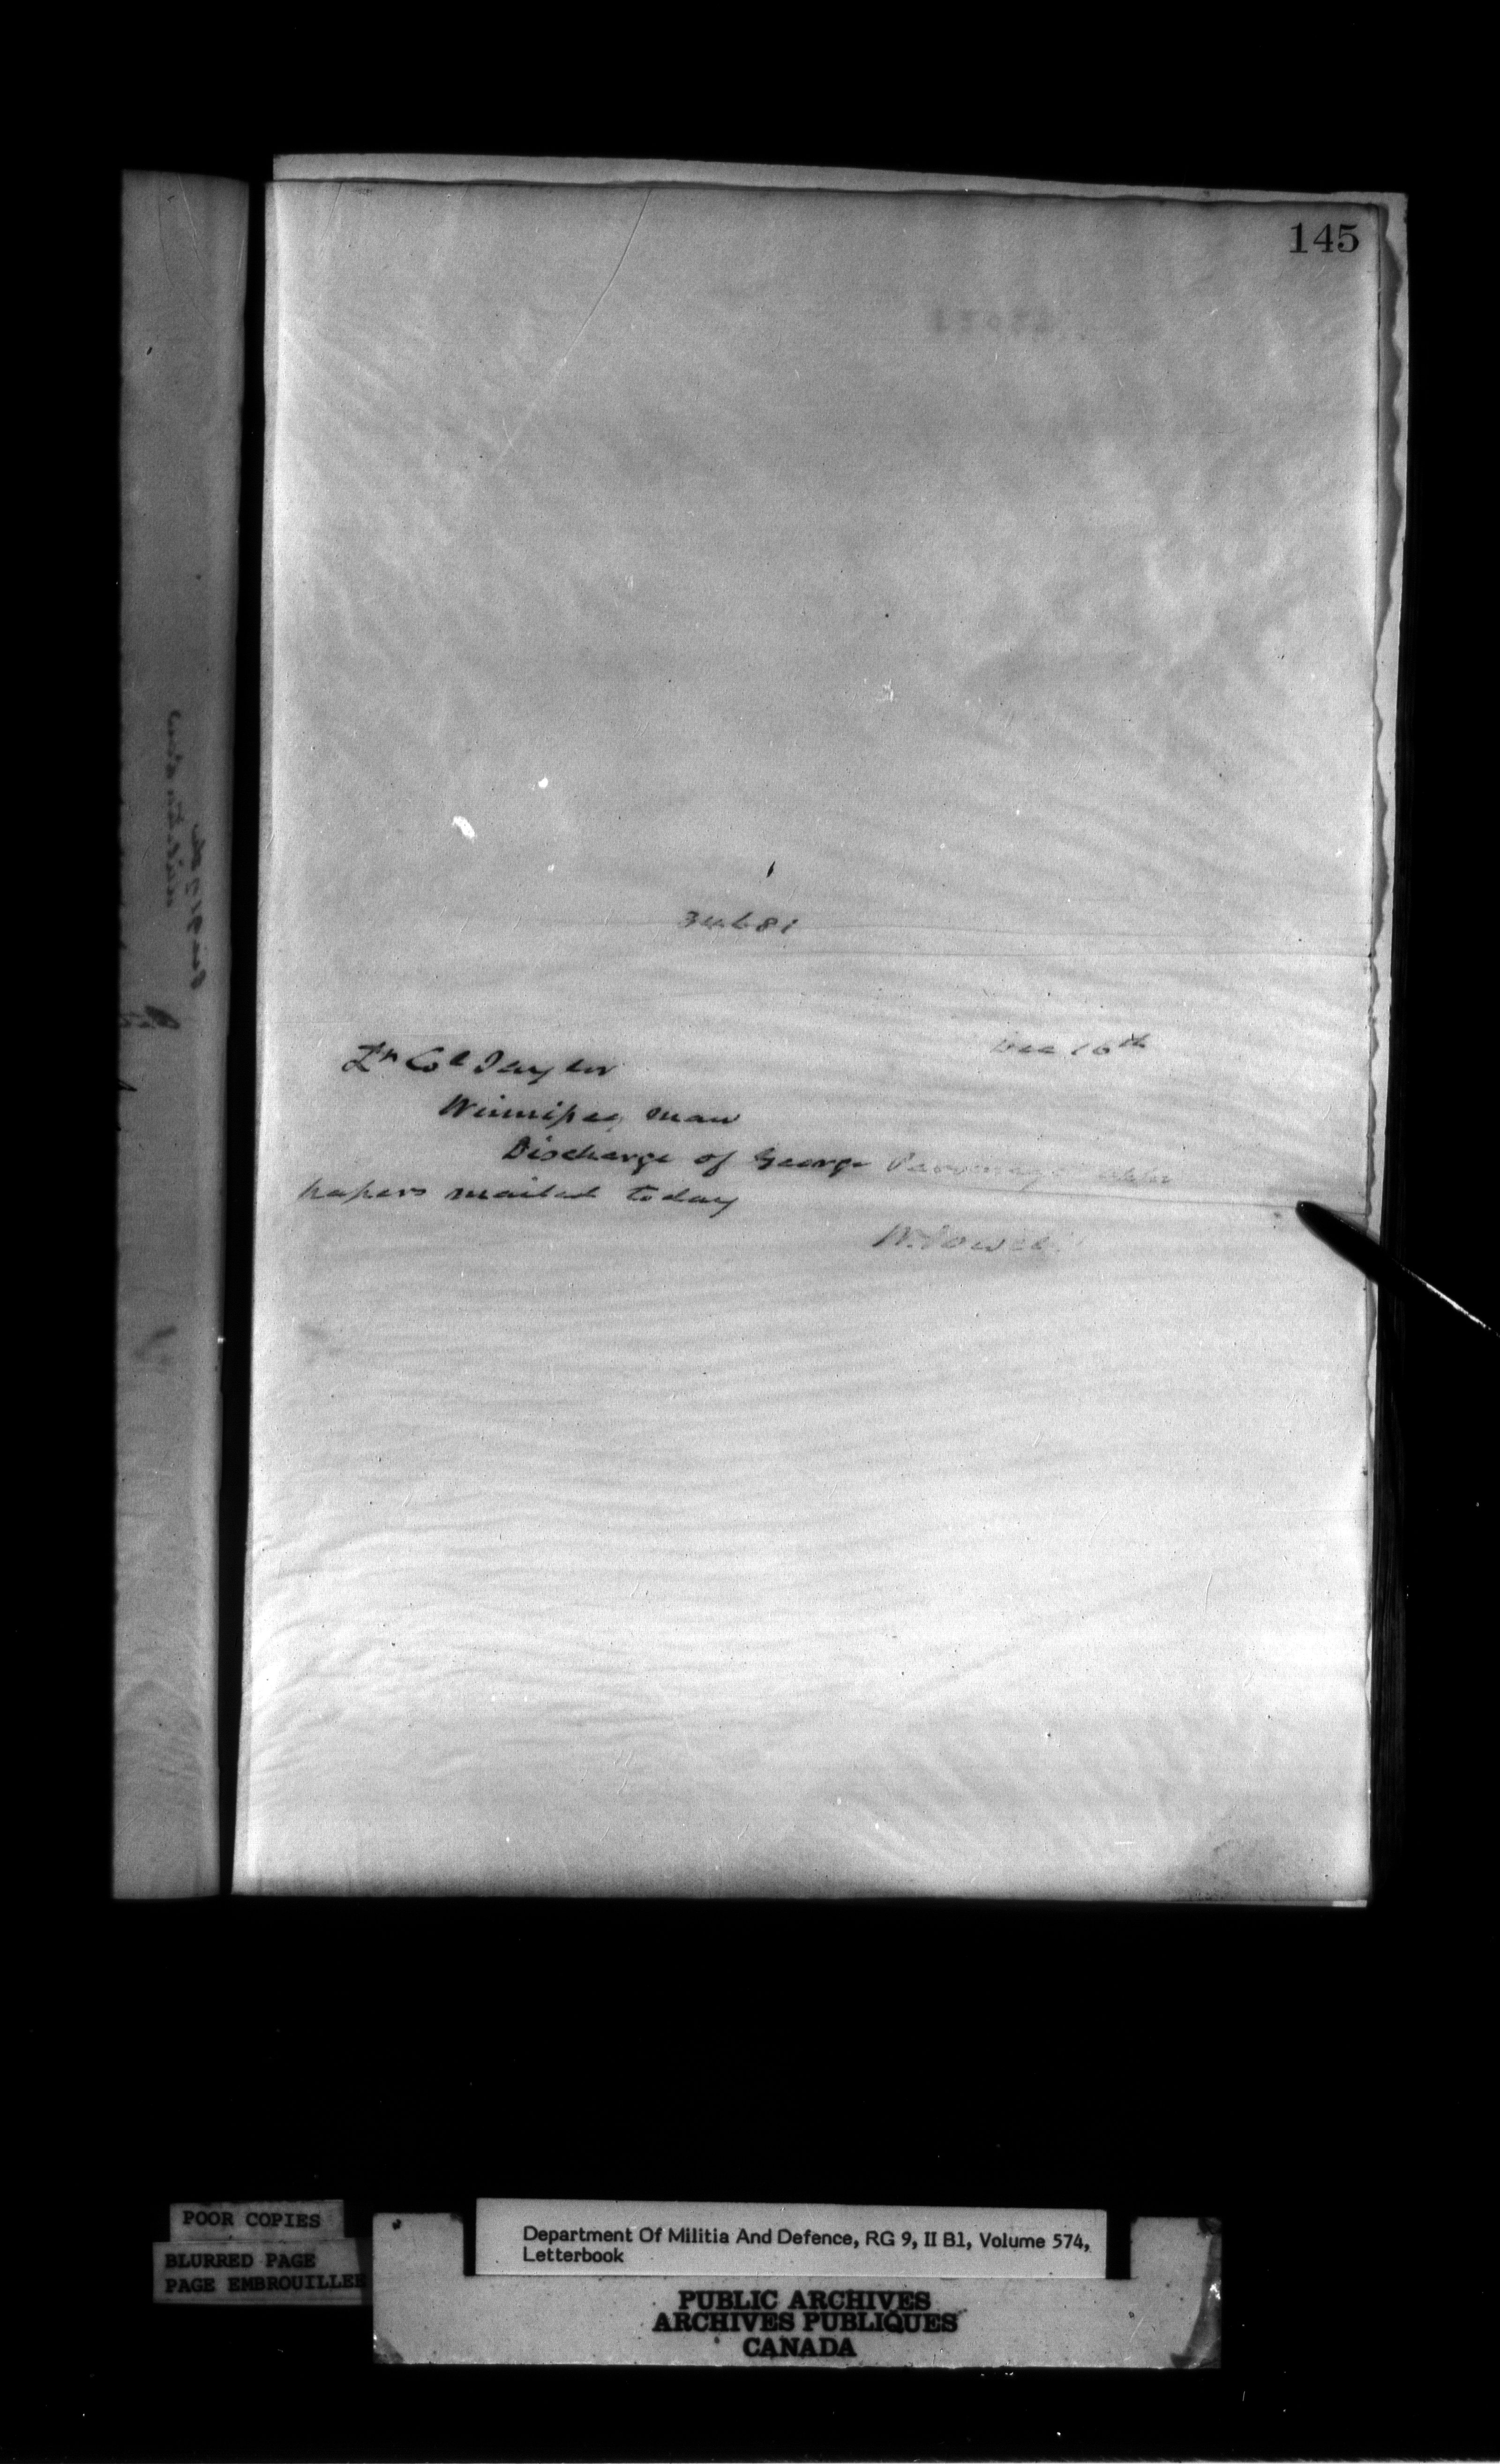 145
34681
Dec 16th
Lt Col Taylor
Winnipeg Man
Discharge of George
papers mailed today
W. Powell
POOR COPIES
BLURRED PAGE
PAGE EMBROUILLEE
Department Of Militia And Defence, RG 9, II B1, Volume 574,
Letterbook
PUBLIC ARCHIVES
ARCHIVES PUBLIQUES
CANADA